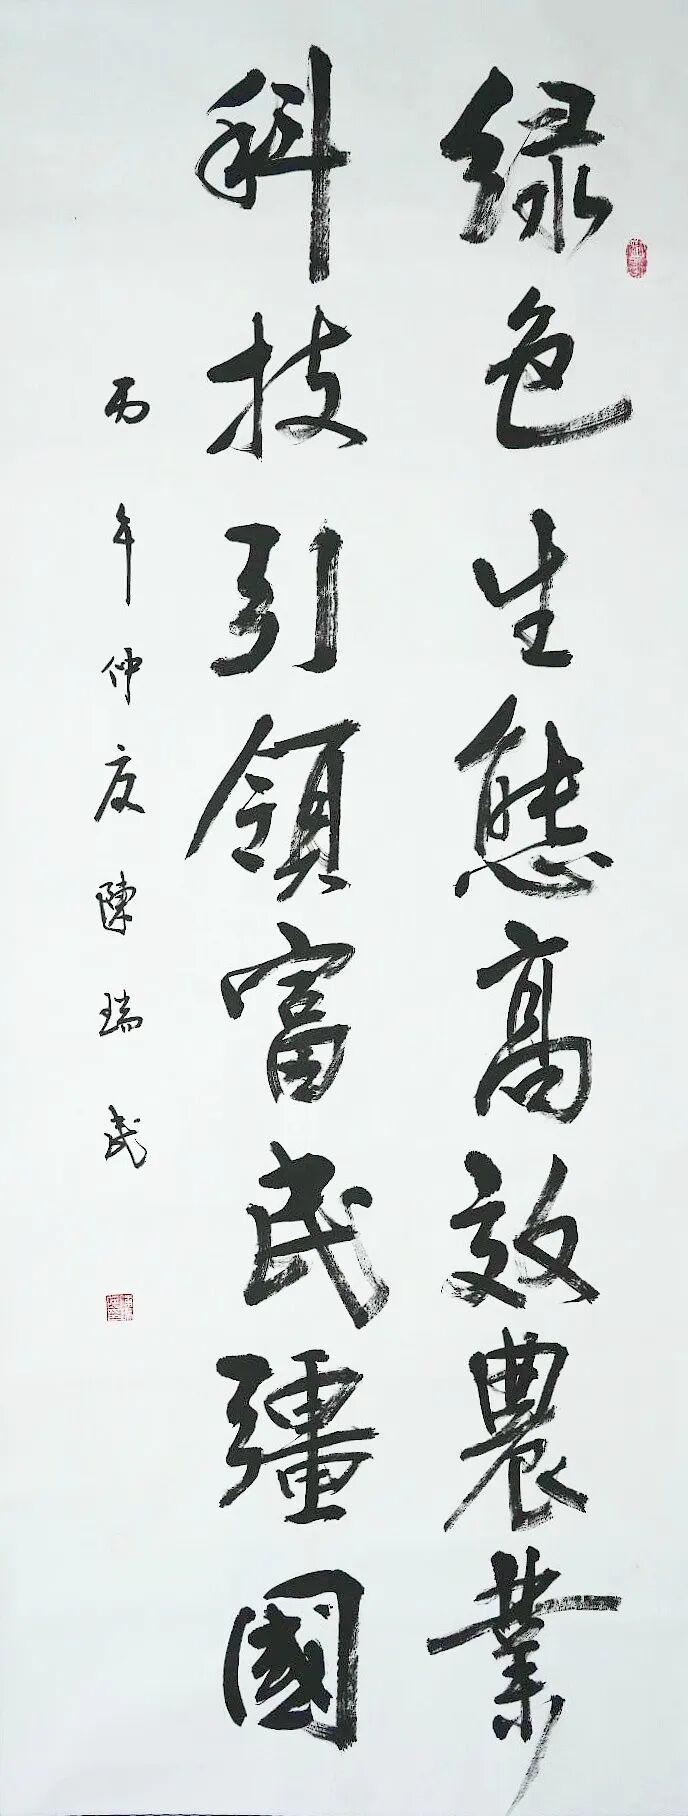 绿色生態高效農業
科技引領富民彊國
丙午仲夏陳瑞民